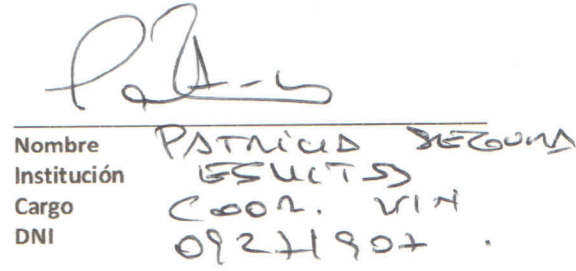 Nombre PATRICIA SEGURA
Institución
Cargo COOR. VIN
DNI 09271907